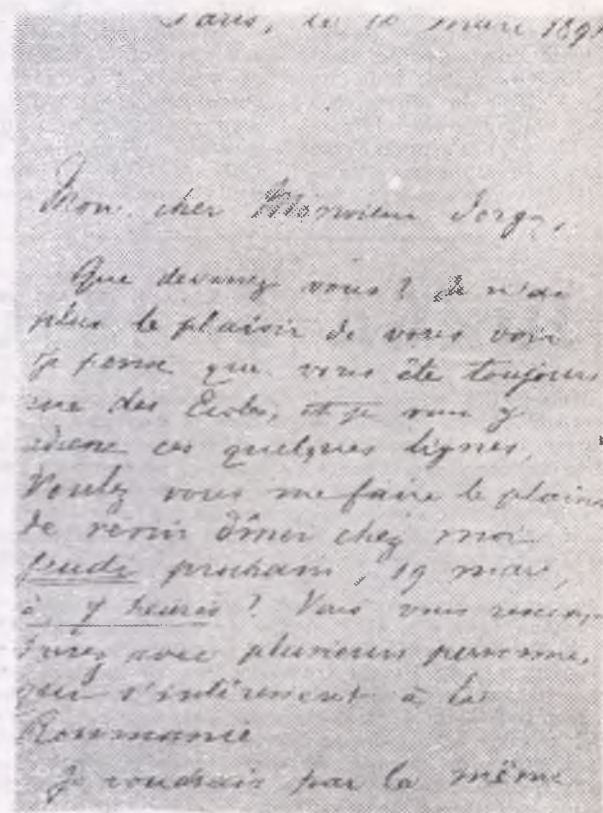 Paris, le 10 mars 189
Mon cher Monsieur Jorga,
Que devenez vous? Je n'ai
plus le plaisir de vous voir
Je pense que vous ête toujours
rue des Ecoles, et je vous y
adresse ces quelques lignes.
Voulez vous me faire le plaisir
de venir dîner chez moi
Jeudi prochain, 19 mars,
à 7 heures? Vous vous rencon-
trerez avec plusieurs personnes,
qui s'intéressent à la
Roumanie
Je voudrais par la même